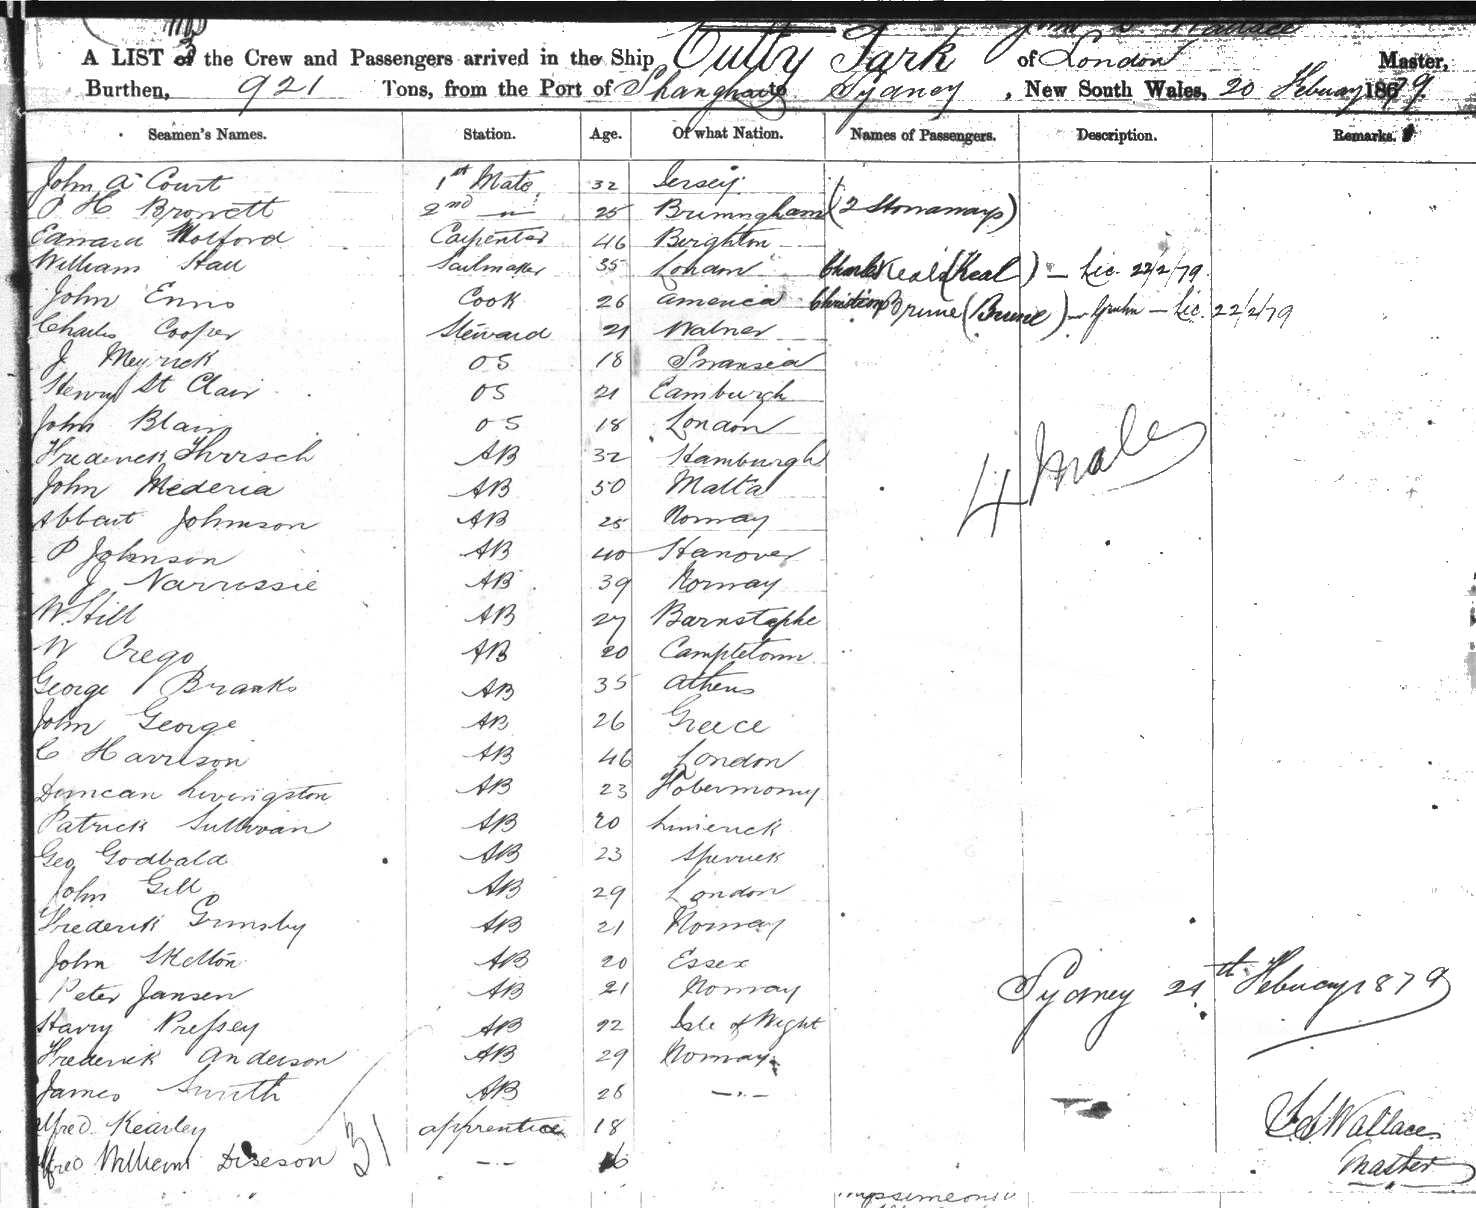 A LIST of the Crew and Passengers arrived in the Ship Cutty Sark of London Master,
Burthen, 921 Tons, from the Port of Shanghai to Sydney, New South Wales, 20 February 1879.
Seamen's Names. Station. Age. Of what Nation. Names of Passengers. Description. Remarks.
John A Court 1st Mate 32 Jersey
P H Browett 2nd -"- 25 Birmngham (2 Stowaways)
Edward Wolford Carpenter 46 Brighton
William Hall Sailmaker 35 London Charles Keald (Keal) - Lic. 22/2/79
John Enns Cook 26 America Christian Brune (Brune) - - Lic. 22/2/79
Charles Cooper Steward 21 Walner
J Meyrick OS 18 Swansea
Henry St Clair OS 21 Edinburgh
John Blain OS 18 London
Frederick Thirsch AB 32 Hamburgh
4 Males
John Mederia AB 50 Malta
Abbert Johnson AB 25 Norway
P Johnson AB 40 Hanover
J Narrussie AB 39 Norway
W Hill AB 27 Barnstaphe
W Crego AB 20 Campletown
George Branks AB 35 Athens
John George AB 26 Greece
C Harrison AB 46 London
Duncan Livingston AB 23 Tobermomy
Patrick Sullivan AB 20 Limerick
Geo Godbald AB 23
John Gill AB 29 London
Frederik Grimsby AB 21 Norway
John Skelton AB 20 Essex
Peter Jansen AB 21 Norway
Sydney 21th February 1879
Harry Pressey AB 22 Isle of Wight
Frederick Anderson AB 29 Norway
James Smith AB 28 -"-
Alfred Kearley apprentice 18
J S Wallace
Alfred William Diseson -"- 16
31
Master